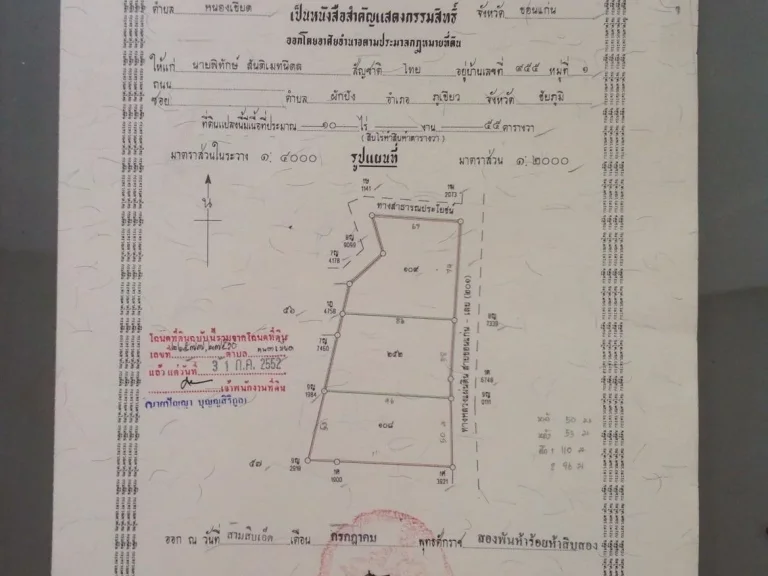 ตำบล หนองเขียด จังหวัด ขอนแก่น
เป็นหนังสือสำคัญแสดงกรรมสิทธิ์
ออกโดยอาศัยอำนาจตามประมวลกฎหมายที่ดิน
ให้แก่ นายพิทักษ์ สันติเมทนีดล สัญชาติ ไทย อยู่บ้านเลขที่ ๙๕๕ หมู่ที่ ๑
ถนน
ซอย ตำบล ผักปัง อำเภอ ภูเขียว จังหวัด ชัยภูมิ
ที่ดินแปลงนี้มีเนื้อที่ประมาณ ๑๐ ไร่ งาน ๕๕ ตารางวา
(สิบไร่ห้าสิบห้าตารางวา)
มาตราส่วนในระวาง ๑: ๔๐๐๐ รูปแผนที่ มาตราส่วน ๑: ๒๐๐๐
น
1141
2073
ทางสาธารณประโยชน์
9069
4179
๑๐๙
๕๖
4758
7839
7460
๒๕๒
ทางหลวงแผ่นดิน สายขอนแก่น - เลย (๒๐๑)
6748
1984
๑๐๘
๕๗
2916
1000
3821
โฉนดที่ดินฉบับนี้รวมจากโฉนดที่ดิน
เลขที่ ตำบล
แล้ว แต่วันที่ 31 ก.ค. 2552
เจ้าพนักงานที่ดิน
(นายปัญญา บุญญสิริกูล)
50
33
110
96
ออก ณ วันที่ สามสิบเอ็ด เดือน กรกฎาคม พุทธศักราช สองพันห้าร้อยห้าสิบสอง